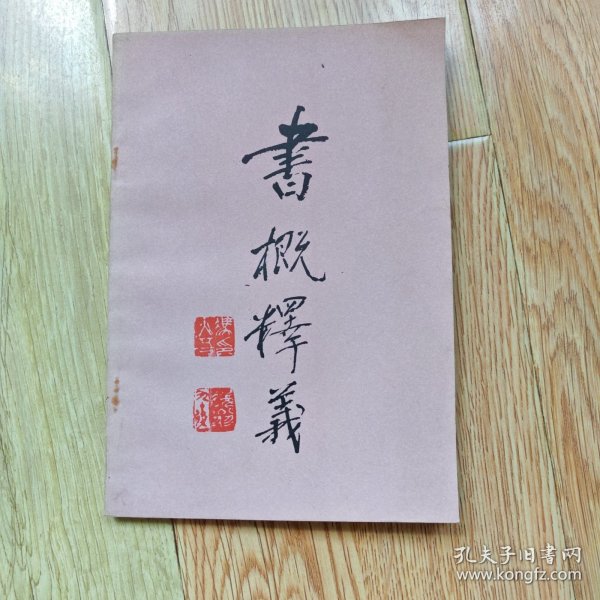 書概釋義
孔夫子旧書网
www.kongfz.com